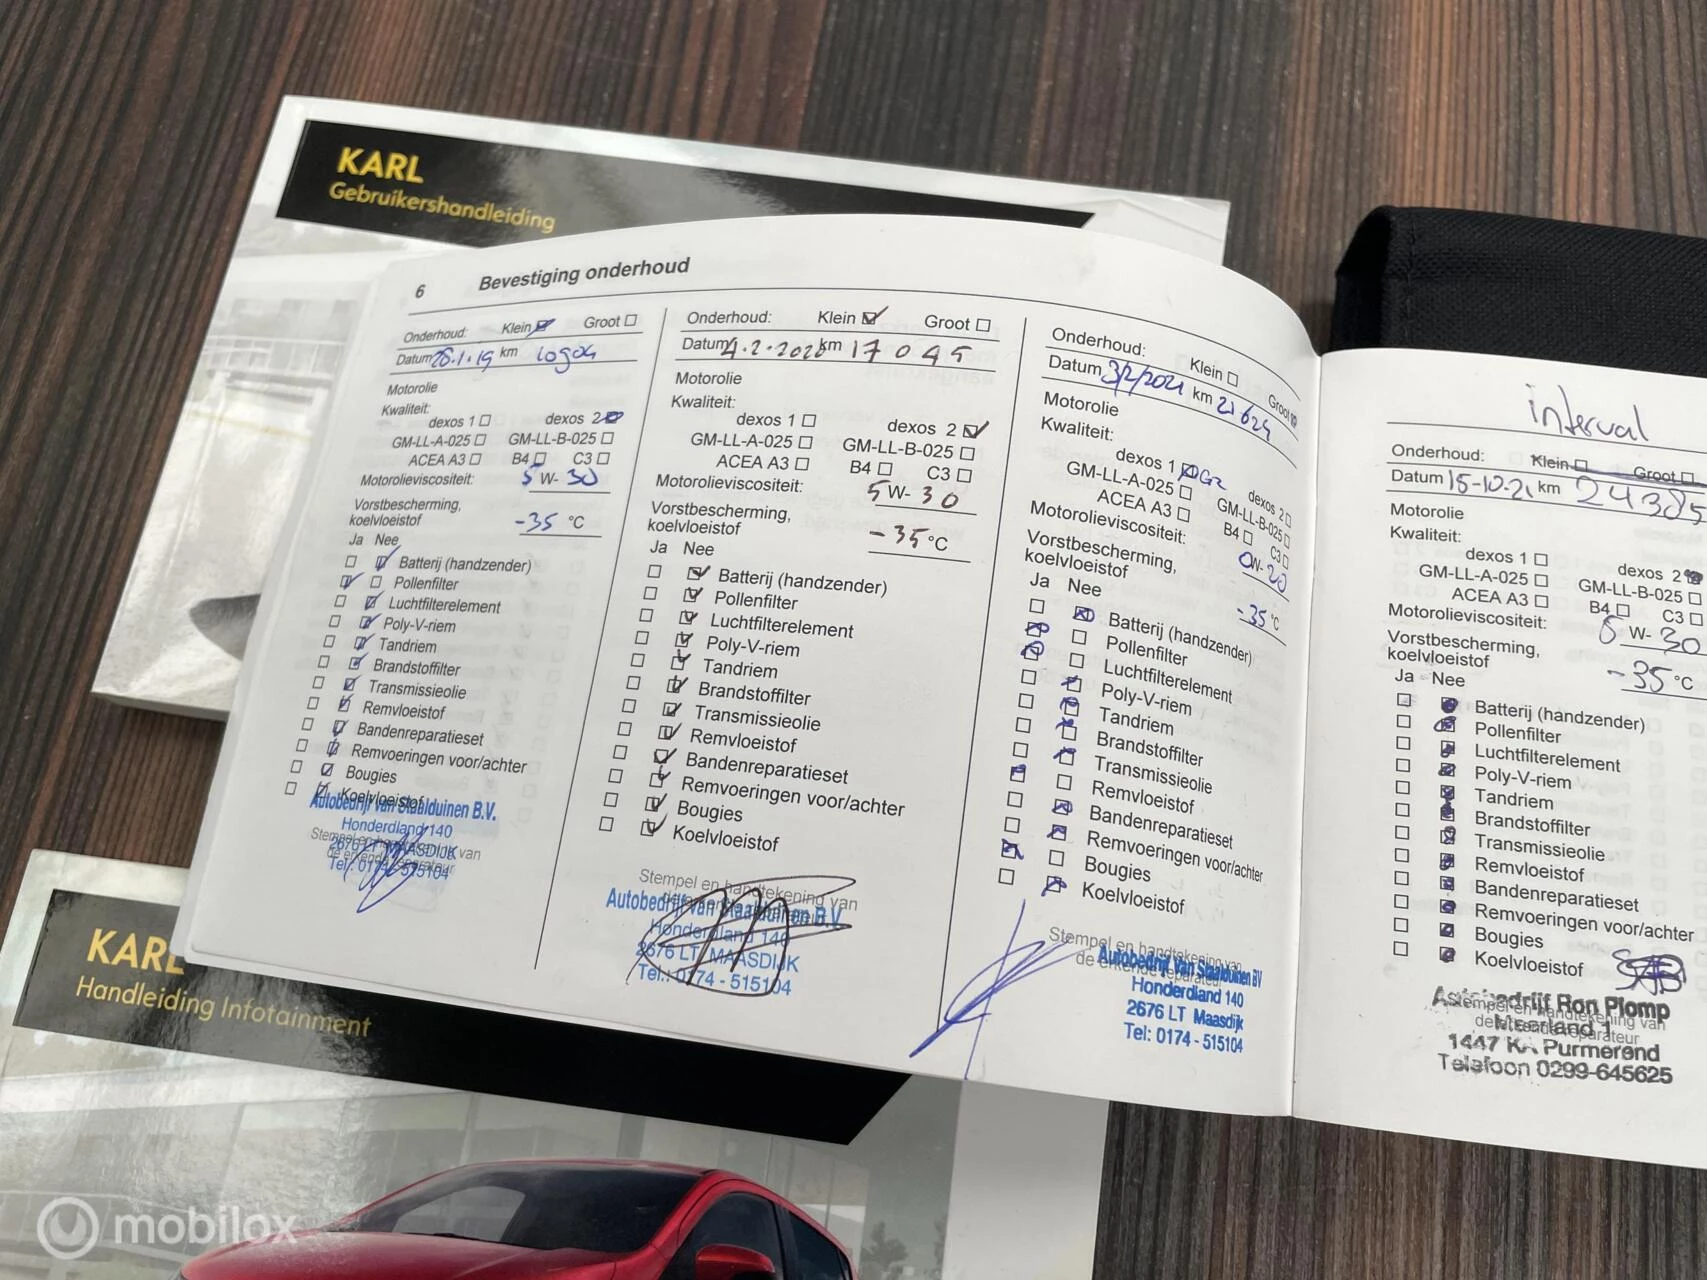 KARL
Gebruikershandleiding
6 Bevestiging onderhoud
Onderhoud: Klein Groot
Datum 28.1.19 km
Motorolie
Kwaliteit:
dexos 1 dexos 2
GM-LL-A-025 GM-LL-B-025
ACEA A3 B4 C3
Motorolieviscositeit: 5 W- 30
Vorstbescherming,
koelvloeistof -35 °C
Ja Nee
Batterij (handzender)
Pollenfilter
Luchtfilterelement
Poly-V-riem
Tandriem
Brandstoffilter
Transmissieolie
Remvloeistof
Bandenreparatieset
Remvoeringen voor/achter
Bougies
Koelvloeistof
Autobedrijf van Staalduinen B.V.
Honderdland 140
Stempel en handtekening van
2676 LT MAASDIJK
de erkende reparateur
Tel: 0174 - 515104
Onderhoud: Klein Groot
Datum 4.2.2020 km 17 045
Motorolie
Kwaliteit:
dexos 1 dexos 2
GM-LL-A-025 GM-LL-B-025
ACEA A3 B4 C3
Motorolieviscositeit: 5 W- 30
Vorstbescherming,
koelvloeistof - 35 °C
Ja Nee
Batterij (handzender)
Pollenfilter
Luchtfilterelement
Poly-V-riem
Tandriem
Brandstoffilter
Transmissieolie
Remvloeistof
Bandenreparatieset
Remvoeringen voor/achter
Bougies
Koelvloeistof
Stempel en handtekening van
de erkende reparateur
Autobedrijf van Staalduinen B.V.
Honderdland 140
2676 LT MAASDIJK
Tel.: 0174 - 515104
Onderhoud: Klein Groot
Datum 3/2/2021 km 21624
Motorolie
Kwaliteit:
dexos 1 dexos 2
GM-LL-A-025 GM-LL-B-025
ACEA A3 B4 C3
Motorolieviscositeit: 0W-20
Vorstbescherming,
koelvloeistof -35 °C
Ja Nee
Batterij (handzender)
Pollenfilter
Luchtfilterelement
Poly-V-riem
Tandriem
Brandstoffilter
Transmissieolie
Remvloeistof
Bandenreparatieset
Remvoeringen voor/achter
Bougies
Koelvloeistof
Stempel en handtekening van
de erkende reparateur
Autobedrijf Van Staalduinen BV
Honderdland 140
2676 LT Maasdijk
Tel: 0174 - 515104
interval
Onderhoud: Klein Groot
Datum 15-10-21 km 24385
Motorolie
Kwaliteit:
dexos 1 dexos 2
GM-LL-A-025 GM-LL-B-025
ACEA A3 B4 C3
Motorolieviscositeit: 5 W- 30
Vorstbescherming,
koelvloeistof -35 °C
Ja Nee
Batterij (handzender)
Pollenfilter
Luchtfilterelement
Poly-V-riem
Tandriem
Brandstoffilter
Transmissieolie
Remvloeistof
Bandenreparatieset
Remvoeringen voor/achter
Bougies
Koelvloeistof
Autobedrijf Ron Plomp
Stempel en handtekening van
Meerland 1
de erkende reparateur
1447 KA Purmerend
Telefoon 0299-645625
KARL
Handleiding Infotainment
mobilox